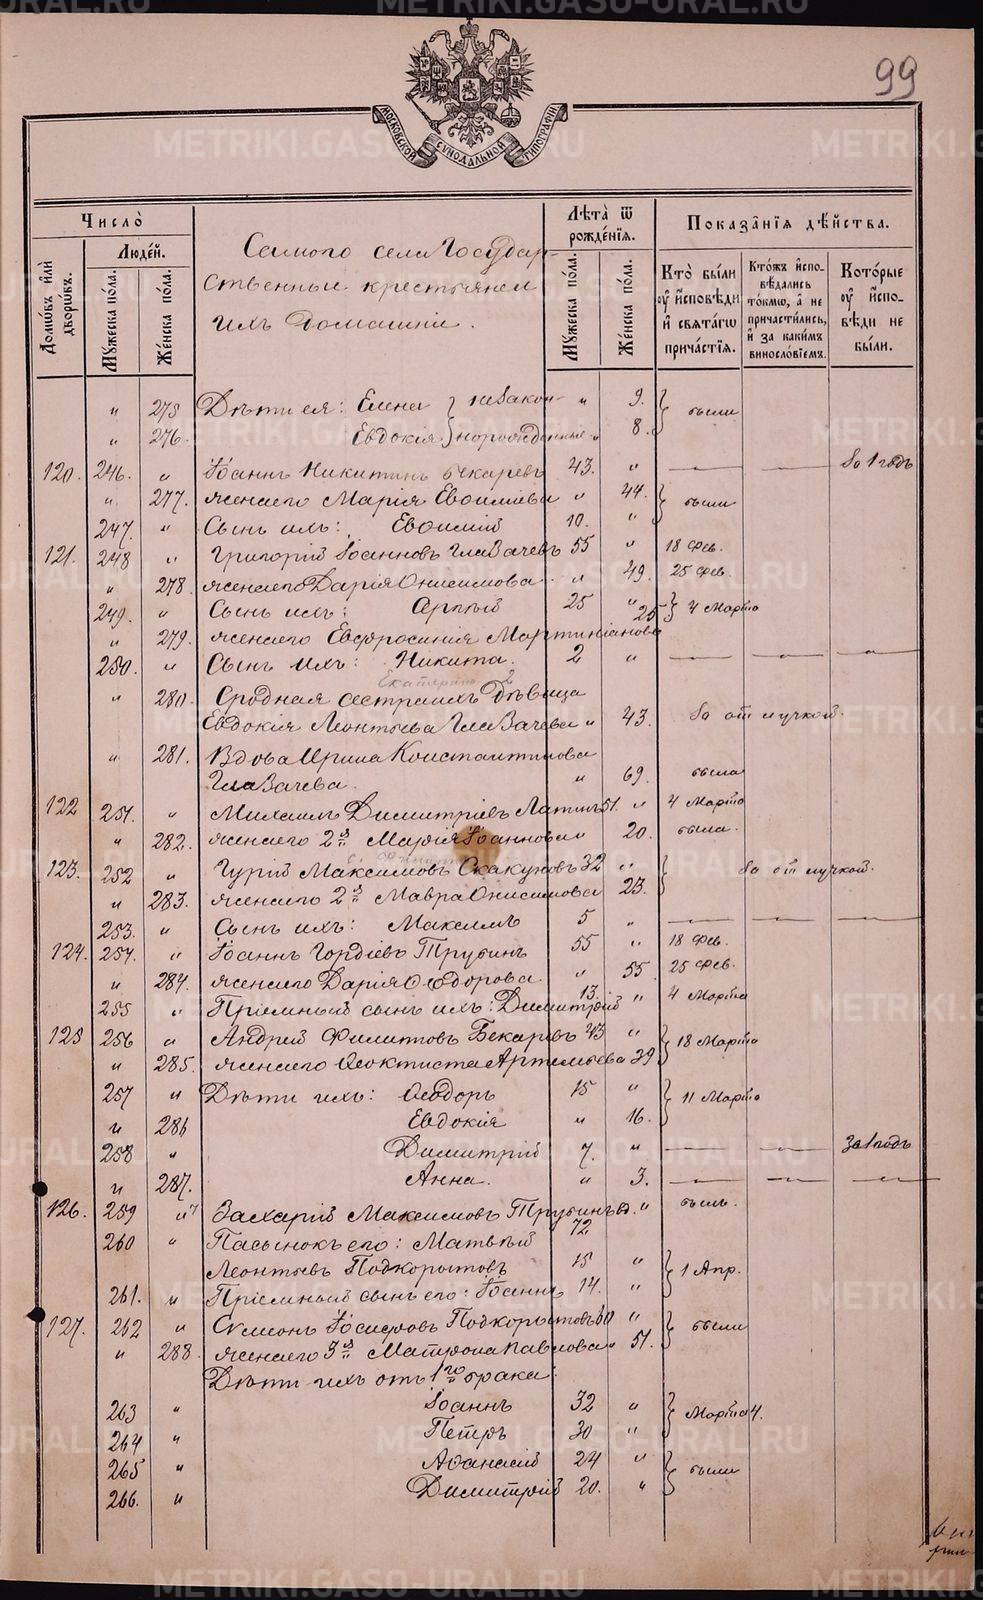 99
МОСКОВСКОЙ СѴНОДАЛЬНОЙ ТИПОГРАФІИ
Число̀
Домѡ́въ и҆лѝ дворѡ́въ.
Люде́й.
Мꙋ́жеска по́ла.
Же́нска по́ла.
Самого села Государ-
ственные крестьяне и
ихъ домашніе.
Лѣ́та ѿ рожде́нїѧ.
Мꙋ́жеска по́ла.
Же́нска по́ла.
Показа̑нїѧ дѣ́йства.
Кто̀ бы́ли ᲂу҆ и҆сповѣ́ди и҆ свѧта́гѡ прича́стїѧ.
Кто́жъ и҆сповѣ́дались то́кмѡ, а҆ не причасти́лись, и҆ за каки́мъ винослові́емъ.
Кото́рые ᲂу҆ и҆сповѣ́ди не бы́ли.
" 275 Дѣти ея: Елена } незакон- " 9. } были
" 276. Евдокія } норожденные " 8.
120. 246. " Іоаннъ Никитинъ Бекаревъ 43. " — — за 1 годъ
" 277. жена его Марія Евѳиміева " 44. } были
247. " Сынъ ихъ: Евѳимій 10. "
121. 248 " Григорій Іоанновъ Глазачевъ 55 " 18 Фев.
" 278. жена его Дарія Онисимова " 49. 25 Фев.
249. " Сынъ ихъ: 25 " } 4 Марта
" 279. жена его Евфросинія Мартиніанова 25
250. " Сынъ ихъ: Никита. 2 " — — —
Екатерина 2
" 280. Сродная сестра ихъ дѣвица
Евдокія Леонтьева Глазачева " 43. за отлучкой.
" 281. Вдова Ирина Константинова
Глазачева. " 69. была
122 251. " Михаилъ Димитріевъ 51. " 4 Марта
" 282. жена его 2я Марія Іоаннова 20. была.
123. 252 " Гурій Максимовъ Скакуновъ 32 " } за отлучкой.
" 283. жена его 2я Мавра Онисимова 23.
253. " Сынъ ихъ: Максимъ 5 " — — —
124. 254. " Іоаннъ Гордіевъ Трубинъ 55 " 18 Фев.
" 284. жена его Дарія Ѳедорова " 55. 25 Фев.
255 " Пріемный сынъ ихъ: Димитрій 13. " 4 Марта
125 256 " Андрей Филиповъ Бекаревъ 43 " } 18 Марта
" 285. жена его Ѳеоктиста Артемьева 39
257 " Дѣти ихъ: Ѳеодоръ 15 " } 11 Марта
" 286 Евдокія " 16.
258 " Димитрій 7. " — — за 1 годъ
" 287. Анна. " 3. — — —
126. 259 " Захарій Максимовъ Трубинъ 72 " былъ.
260 " Пасынокъ его: Матвѣй
Леонтьевъ Подкорытовъ 15 " } 1 Апр.
261. " Пріемный сынъ его: Іоаннъ 14. "
127. 262 " Симеонъ Іосифовъ Подкорытовъ " } были
" 288. жена его 3я Матрона Павлова 51.
Дѣти ихъ отъ 1го брака:
263 " Іоаннъ 32 " } Марта 4.
264 " Петръ 30 "
265 " Аѳанасій 24 " } были
266. " Димитрій 20. "